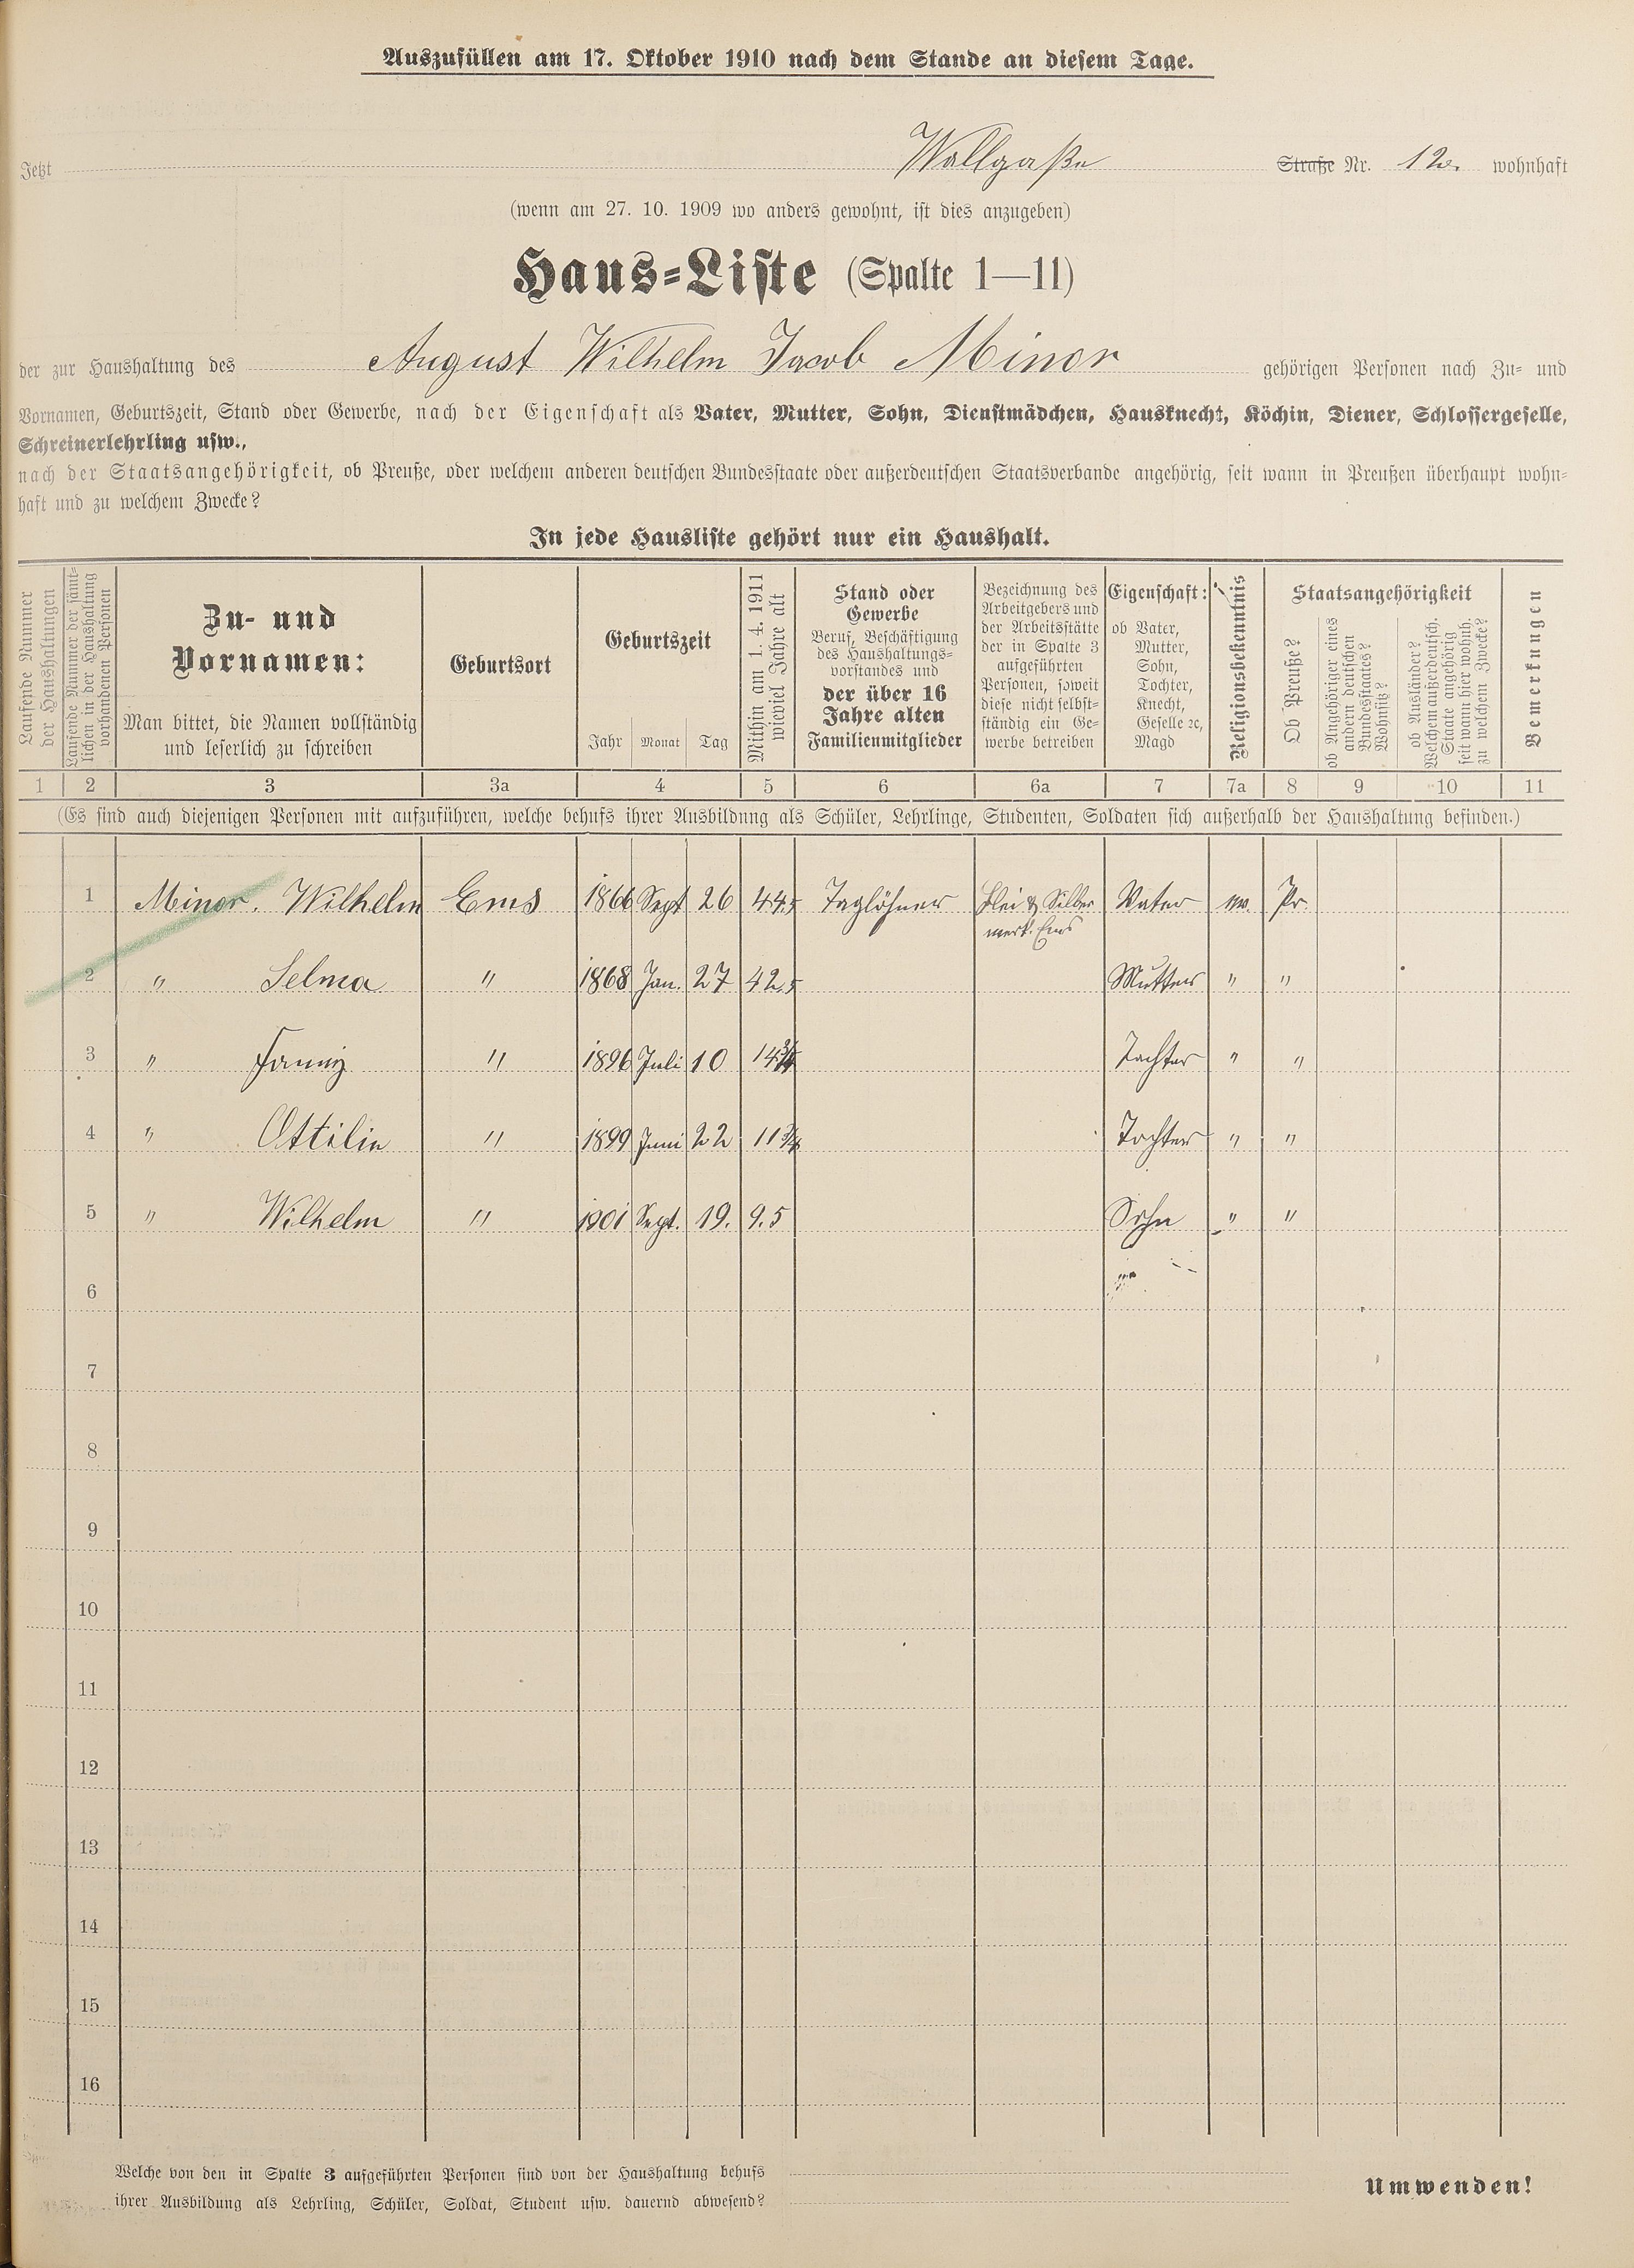 Auszufüllen am 17. Oktober 1910 nach dem Stande an diesem Tage.
Jetzt Wallgaße Straße Nr. 12. wohnhaft
(wenn am 27. 10. 1909 wo anders gewohnt, ist dies anzugeben)
Haus-Liste (Spalte 1—11)
der zur Haushaltung des August Wilhelm Jacob Minor gehörigen Personen nach Zu- und
Vornamen, Geburtszeit, Stand oder Gewerbe, nach der Eigenschaft als Vater, Mutter, Sohn, Dienstmädchen, Hausknecht, Köchin, Diener, Schlossergeselle,
Schreinerlehrling usw.,
nach der Staatsangehörigkeit, ob Preuße, oder welchem anderen deutschen Bundesstaate oder außerdeutschen Staatsverbande angehörig, seit wann in Preußen überhaupt wohn-
haft und zu welchem Zwecke?
In jede Hausliste gehört nur ein Haushalt.
Laufende Nummer
der Haushaltungen
Laufende Nummer der sämt-
lichen in der Haushaltung
vorhandenen Personen
Zu- und
Vornamen:
Man bittet, die Namen vollständig
und leserlich zu schreiben
Geburtsort
Geburtszeit
Jahr Monat Tag
Mithin am 1. 4. 1911
wieviel Jahre alt
Stand oder
Gewerbe
Beruf, Beschäftigung
des Haushaltungs-
vorstandes und
der über 16
Jahre alten
Familienmitglieder
Bezeichnung des
Arbeitgebers und
der Arbeitsstätte
der in Spalte 3
aufgeführten
Personen, soweit
diese nicht selbst-
ständig ein Ge-
werbe betreiben
Eigenschaft:
ob Vater,
Mutter,
Sohn,
Tochter,
Knecht,
Geselle ꝛc,
Magd
Religionsbekenntnis
Staatsangehörigkeit
Ob Preuße?
ob Angehöriger eines
andern deutschen
Bundesstaates?
Wohnsitz?
ob Ausländer?
Welchem außerdeutsch.
Staate angehörig
seit wann hier wohnh.
zu welchem Zwecke?
Bemerkungen
1 2 3 3a 4 5 6 6a 7 7a 8 9 10 11
(Es sind auch diejenigen Personen mit aufzuführen, welche behufs ihrer Ausbildung als Schüler, Lehrlinge, Studenten, Soldaten sich außerhalb der Haushaltung befinden.)
1 Minor. Wilhelm Ems 1866 Sept 26 44,5 Taglöhner Blei & Silber Vater Pr.
werk. Ems
2 " Selma " 1868 Jan. 27 42,5 Mutter " "
3 " Fanny " 1896 Juli 10 14 3/4 Tochter " "
4 " Ottilie " 1899 Juni 22 11 3/4 Tochter " "
5 " Wilhelm " 1901 Sept. 19. 9.5 Sohn " "
6
7
8
9
10
11
12
13
14
15
16
Welche von den in Spalte 3 aufgeführten Personen sind von der Haushaltung behufs
ihrer Ausbildung als Lehrling, Schüler, Soldat, Student usw. dauernd abwesend?
Umwenden!